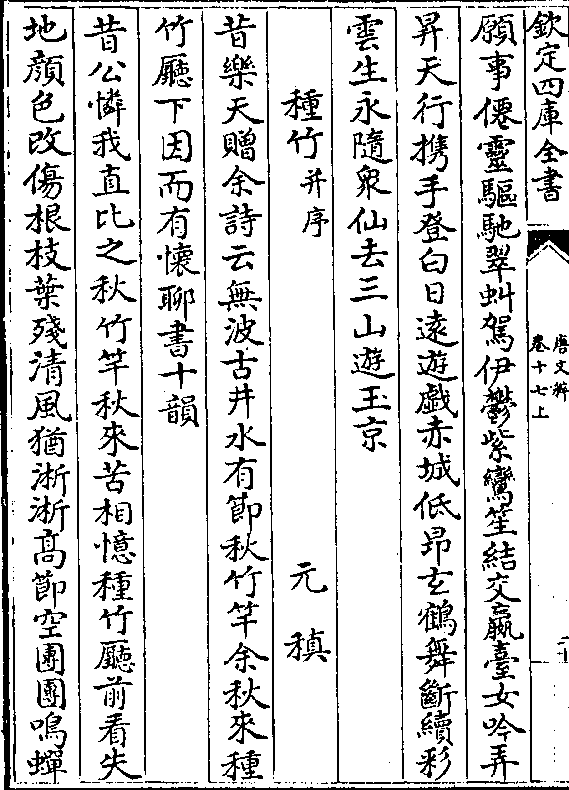 欽定四庫全書
唐文粹
卷十七上
二十一
願事僊靈驅馳翠虯駕伊鬱紫鸞笙結交嬴臺女吟弄
昇天行携手登白日遠遊戲赤城低昂玄鶴舞斷續彩
雲生永隨衆仙去三山遊玉京
種竹并序 元稹
昔樂天贈余詩云無波古井水有節秋竹竿余秋來種
竹廳下因而有懷聊書十韻
昔公憐我直比之秋竹竿秋來苦相憶種竹廳前看失
地顔色改傷根枝葉殘清風猶淅淅高節空團團鳴蟬